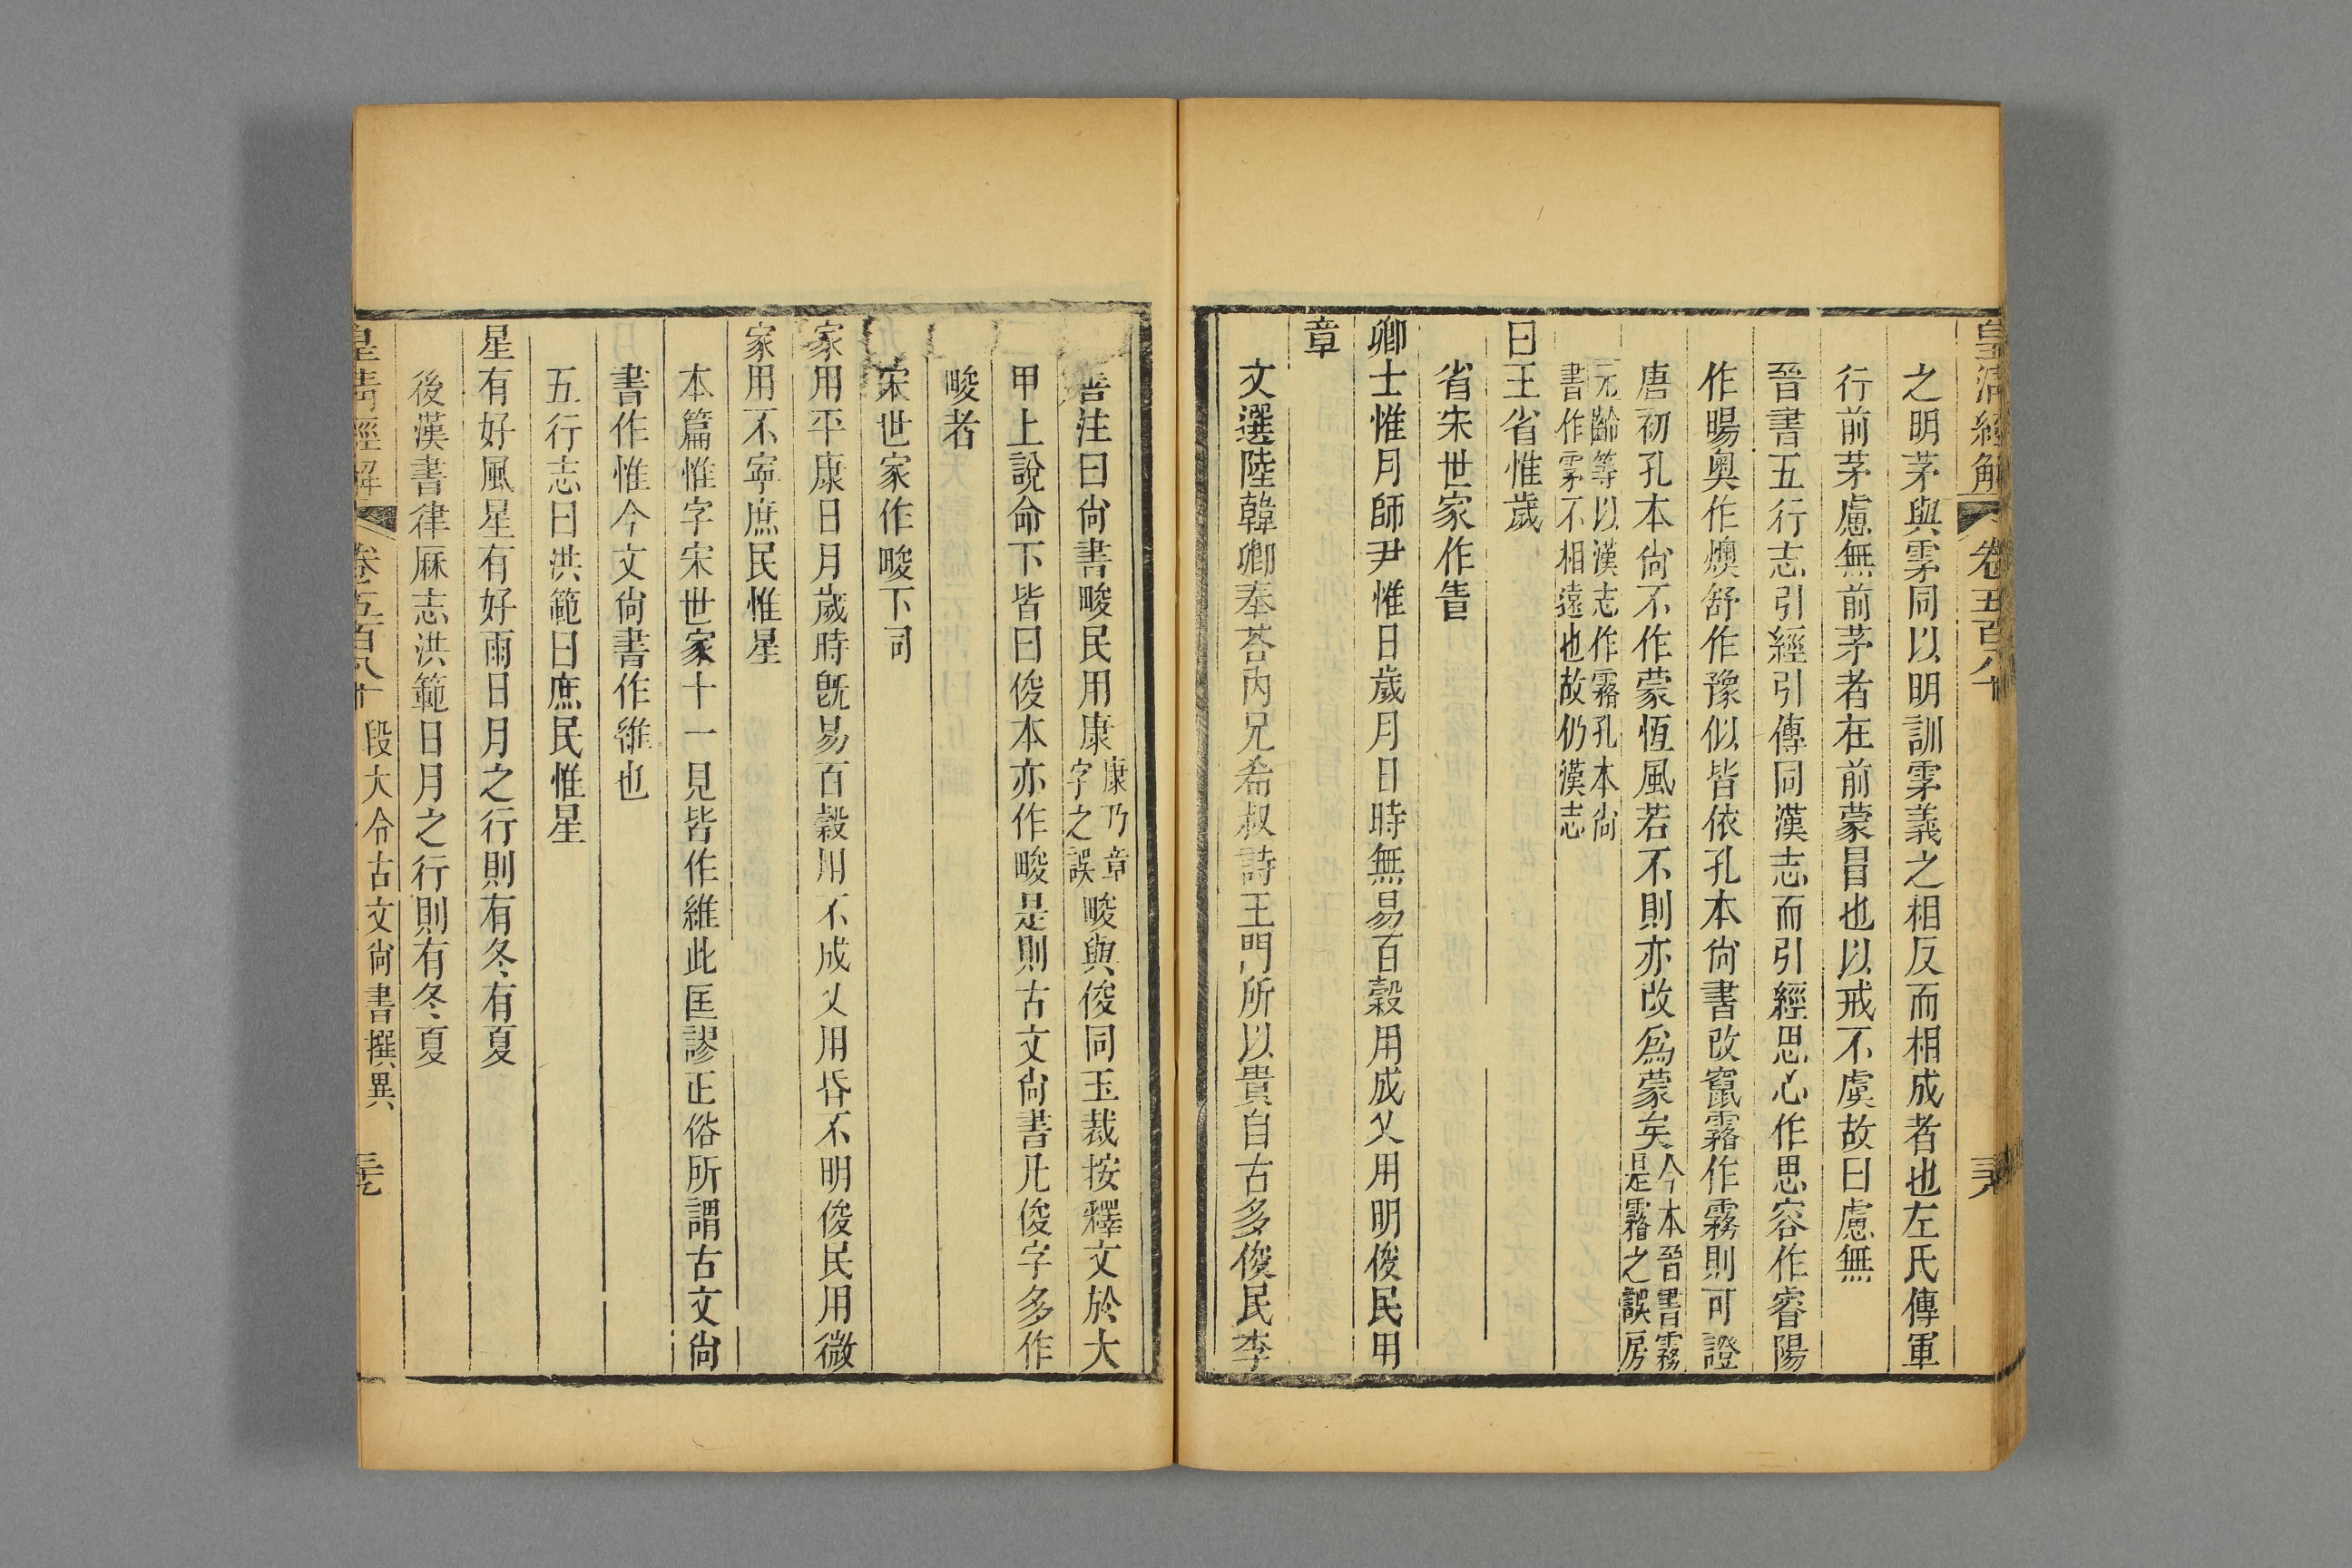 皇清經解 卷五百八十
之明茅與雺同以明訓雺義之相反而相成者也左氏傳軍
行前茅慮無前茅者在前蒙冒也以戒不虞故曰慮無
晉書五行志引經引傳同漢志而引經思心作思容作睿陽
作暘奧作燠舒作豫似皆依孔本尙書改竄霿作霧則可證
唐初孔本尙不作蒙恆風若不則亦改爲蒙矣今本晉書霧是霿之誤房
元齡等以漢志作霿孔本尙書作雺不相遠也故仍漢志
曰王省惟歲
省宋世家作眚
卿士惟月師尹惟日歲月日時無易百穀用成乂用明俊民用
章
文選陸韓卿奉荅內兄希叔詩王門所以貴自古多俊民李
善注曰尙書畯民用康康乃章字之誤畯與俊同玉裁按釋文於大
甲上說命下皆曰俊本亦作畯是則古文尙書凡俊字多作
畯者
宋世家作畯下同
家用平康日月歲時旣易百穀用不成乂用昬不明俊民用微
家用不寧庶民惟星
本篇惟字宋世家十一見皆作維此匡謬正俗所謂古文尙
書作惟今文尙書作維也
五行志曰洪範曰庶民惟星
星有好風星有好雨日月之行則有冬有夏
後漢書律厤志洪範日月之行則有冬夏
皇淸經解 卷五百八十 段大令古文尙書撰異